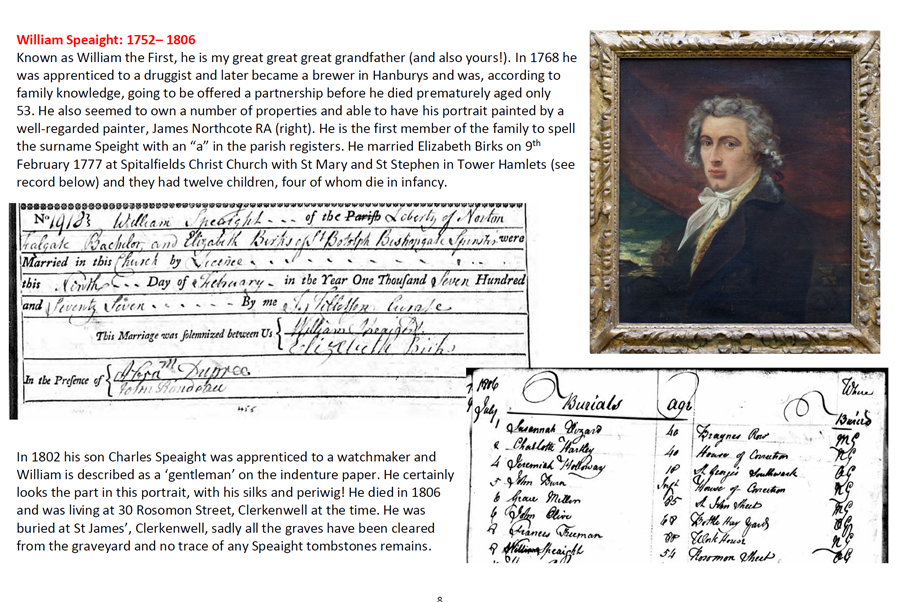 William Speaight: 1752– 1806
Known as William the First, he is my great great great grandfather (and also yours!). In 1768 he
was apprenticed to a druggist and later became a brewer in Hanburys and was, according to
family knowledge, going to be offered a partnership before he died prematurely aged only
53. He also seemed to own a number of properties and able to have his portrait painted by a
well-regarded painter, James Northcote RA (right). He is the first member of the family to spell
the surname Speight with an “a” in the parish registers. He married Elizabeth Birks on 9th
February 1777 at Spitalfields Christ Church with St Mary and St Stephen in Tower Hamlets (see
record below) and they had twelve children, four of whom die in infancy.
No William Speaight of the Parish Liberty of Norton
Falgate Bachelor, and Elizabeth Birks of St Botolph Bishopsgate Spinster were
Married in this Church by Licence
this Ninth Day of February in the Year One Thousand Seven Hundred
and Seventy Seven By me Curate
This Marriage was solemnized between Us William Speaight
Elizabeth Birks
In the Presence of Dupree
John Rondeau
1806
July
Burials age Where Buried
1 Susannah 40 Braynes Row
2 Charlotte Hartley 40 House of Correction
4 Jeremiah Holloway 18 St Georges Southwark
5 John House of Correction
6 Grace 65 St John Street
6 John Olive 68 Bottle Hay Yard
8 Frances Freeman Work House
9 William Speaight 54 Rosomon Street
In 1802 his son Charles Speaight was apprenticed to a watchmaker and
William is described as a ‘gentleman’ on the indenture paper. He certainly
looks the part in this portrait, with his silks and periwig! He died in 1806
and was living at 30 Rosomon Street, Clerkenwell at the time. He was
buried at St James’, Clerkenwell, sadly all the graves have been cleared
from the graveyard and no trace of any Speaight tombstones remains.
8